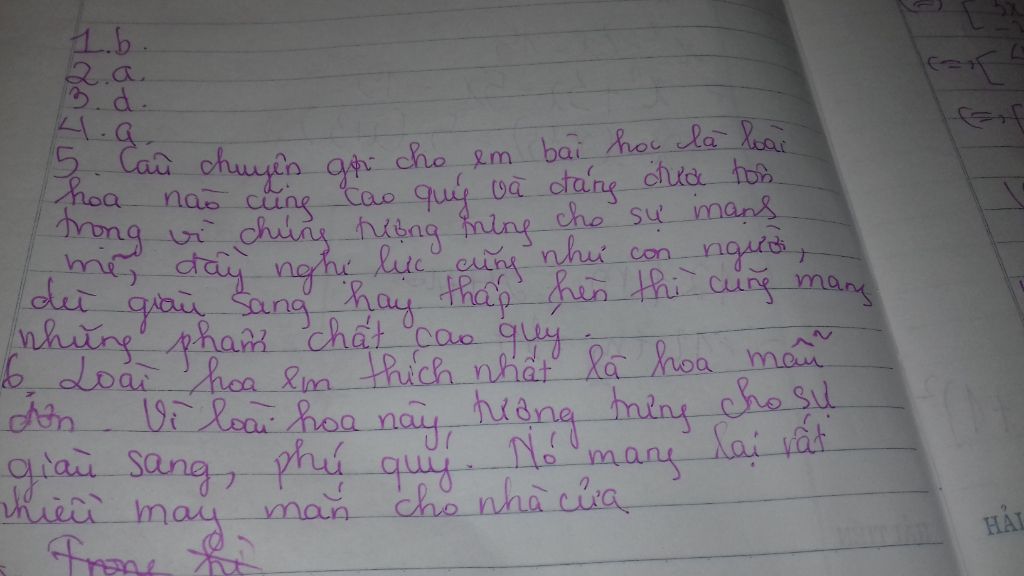 1. b.
2. a.
3. d.
4. a
5. Câu chuyện gợi cho em bài học là loài
hoa nào cũng cao quý và đáng được tôn
trọng vì chúng tượng trưng cho sự mạnh
mẽ, đầy nghị lực cũng như con người,
dù giàu sang hay thấp hèn thì cũng mang
những phẩm chất cao quý.
6 Loài hoa em thích nhất là hoa mẫu
đơn. Vì loài hoa này tượng trưng cho sự
giàu sang, phú quý. Nó mang lại rất
nhiều may mắn cho nhà cửa
HẢI